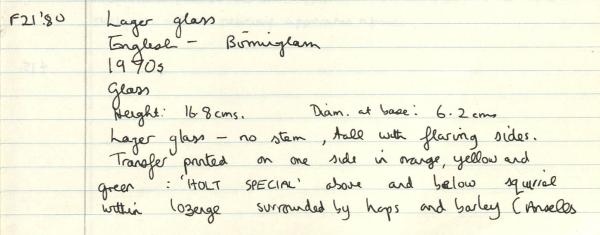 F21'80 Lager glass
English - Birmingham
1970s
Glass
Height: 16.8 cms. Diam. at base: 6.2 cms
Lager glass - no stem, tall with flaring sides.
Transfer printed on one side in orange, yellow and
green : 'HOLT SPECIAL' above and below squirrel
within lozenge surrounded by hops and barley (Ansells